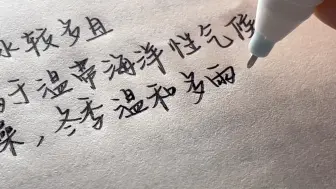 水较多且
于温带海洋性气候
燥，冬季温和多雨